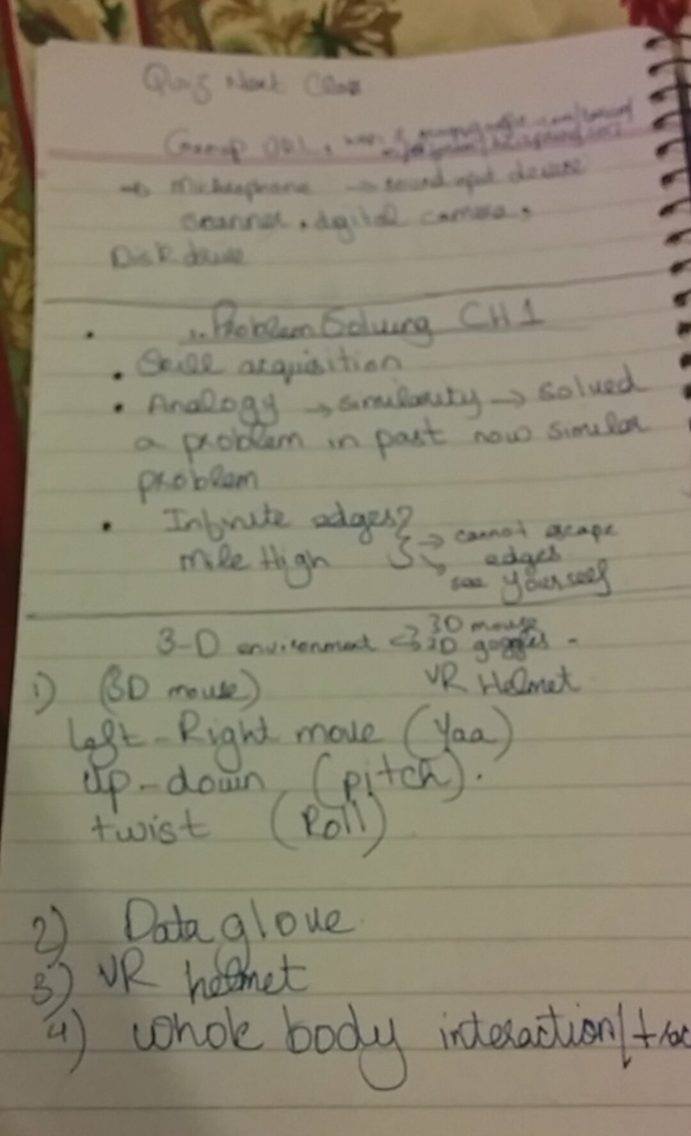 Quiz Next Class
Group URL,
→ Microphone → sound input device
scanner, digital camera,
Disk drive
Problem Solving CH1
Skill acquisition
• Analogy → similarity → solved
a problem in past now similar
problem
• Infinite edges? → cannot escape
edges
Mile High → see yourself
3-D environment 3D mouse
3D goggles
VR Helmet
1) (3D mouse)
Left-Right move (Yaa)
Up-down (pitch).
twist (Roll)
2) Data glove
3) VR helmet
4) whole body interaction/trac